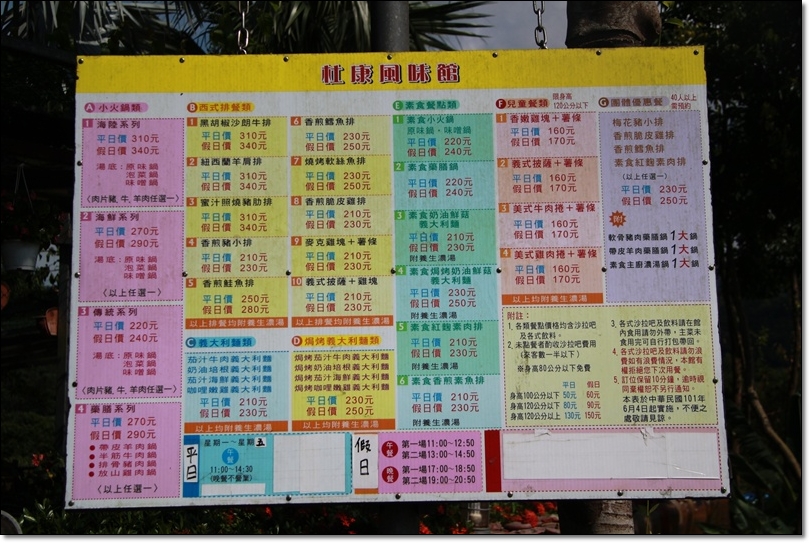 杜康風味館
A 小火鍋類
1 海陸系列
平日價 310元
假日價 340元
湯底:原味鍋
泡菜鍋
味噌鍋
〈肉片豬、牛、羊肉任選一〉
2 海鮮系列
平日價 270元
假日價 290元
湯底:原味鍋
泡菜鍋
味噌鍋
〈以上任選一〉
3 傳統系列
平日價 220元
假日價 240元
湯底:原味鍋
泡菜鍋
味噌鍋
〈肉片豬、牛、羊肉任選一〉
4 藥膳系列
平日價 270元
假日價 290元
●帶皮羊肉鍋
●半筋牛肉鍋
●排骨豬肉鍋
●放山雞肉鍋
〈以上任選一〉
B 西式排餐類
1 黑胡椒沙朗牛排
平日價 310元
假日價 340元
2 紐西蘭羊肩排
平日價 310元
假日價 340元
3 蜜汁照燒豬肋排
平日價 310元
假日價 340元
4 香煎豬小排
平日價 210元
假日價 230元
5 香煎鮭魚排
平日價 250元
假日價 280元
以上排餐均附養生濃湯
6 香煎鱈魚排
平日價 230元
假日價 250元
7 燒烤軟絲魚排
平日價 230元
假日價 250元
8 香煎脆皮雞排
平日價 210元
假日價 230元
9 麥克雞塊+薯條
平日價 210元
假日價 230元
10 義式披薩+雞塊
平日價 210元
假日價 230元
以上排餐均附養生濃湯
C 義大利麵類
茄汁牛肉義大利麵
奶油培根義大利麵
茄汁海鮮義大利麵
咖哩嫩雞義大利麵
平日價 210元
假日價 230元
以上均附養生濃湯
D 焗烤義大利麵類
焗烤茄汁牛肉義大利麵
焗烤奶油培根義大利麵
焗烤茄汁海鮮義大利麵
焗烤咖哩嫩雞義大利麵
平日價 230元
假日價 250元
以上均附養生濃湯
E 素食餐點類
1 素食小火鍋
原味鍋、味噌鍋
平日價 220元
假日價 240元
2 素食藥膳鍋
平日價 220元
假日價 240元
3 素食奶油鮮菇
義大利麵
平日價 210元
假日價 230元
附養生濃湯
4 素食焗烤奶油鮮菇
義大利麵
平日價 230元
假日價 250元
附養生濃湯
5 素食紅麴素肉排
平日價 210元
假日價 230元
附養生濃湯
6 素食香煎素魚排
平日價 210元
假日價 230元
附養生濃湯
F 兒童餐類
限身高
120公分以下
1 香嫩雞塊+薯條
平日價 160元
假日價 170元
2 義式披薩+薯條
平日價 160元
假日價 170元
3 美式牛肉捲+薯條
平日價 160元
假日價 170元
4 美式雞肉捲+薯條
平日價 160元
假日價 170元
以上均附養生濃湯
G 團體優惠餐
40人以上
需預約
梅花豬小排
香煎脆皮雞排
香煎鱈魚排
素食紅麴素肉排
(以上任選一)
平日價 230元
假日價 250元
附
軟骨豬肉藥膳鍋1大鍋
帶皮羊肉藥膳鍋1大鍋
素食主廚濃湯鍋1大鍋
附註:
1、各類餐點價格均含沙拉吧
及各式飲料。
2、未點餐者酌收沙拉吧費用
(來客數一半以下)
※身高80公分以下免費
平日 假日
身高100公分以下 50元 60元
身高120公分以下 80元 90元
身高120公分以上 130元 150元
3、各式沙拉吧及飲料請在館
內食用請勿外帶,主菜未
食用完可自行打包帶回。
4、各式沙拉吧及飲料請勿浪
費如有浪費情況,本館有
權拒絕您下次用餐。
5、訂位保留10分鐘,逾時視
同棄權恕不另行通知。
本表於中華民國101年
6月4日起實施,不便之
處敬請見諒。
平日
星期一~星期五
午餐
11:00~14:30
(晚餐不營業)
假日
午餐
第一場11:00~12:50
第二場13:00~14:50
晚餐
第一場17:00~18:50
第二場19:00~20:50